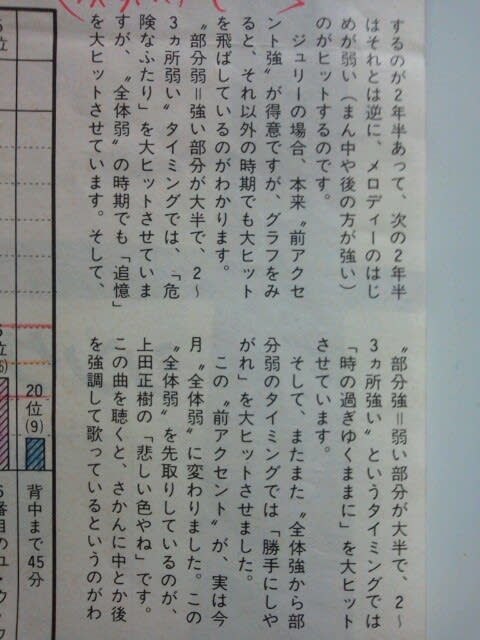 するのが2年半あって、次の2年半
はそれとは逆に、メロディーのはじ
めが弱い(まん中や後の方が強い)
のがヒットするのです。
ジュリーの場合、本来〝前アクセ
ント強〟が得意ですが、グラフをみ
ると、それ以外の時期でも大ヒット
を飛ばしているのがわかります。
〝部分弱=強い部分が大半で、2〜
3ヵ所弱い〟タイミングでは、「危
険なふたり」を大ヒットさせていま
すが、〝全体弱〟の時期でも「追憶」
を大ヒットさせています。そして、
〝部分強=弱い部分が大半で、2〜
3ヵ所強い〟というタイミングでは
「時の過ぎゆくままに」を大ヒット
させています。
そして、またまた〝全体強から部
分弱のタイミングでは「勝手にしや
がれ」を大ヒットさせました。
この〝前アクセント〟が、実は今
月〝全体弱〟に変わりました。この
〝全体弱〟を先取りしているのが、
上田正樹の「悲しい色やね」です。
この曲を聴くと、さかんに中とか後
を強調して歌っているというのがわ
20
位
(9)
背中まで45分